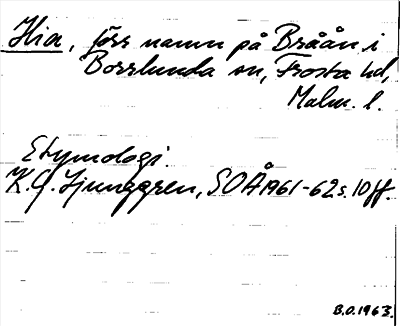 Hia, förr namn på Bråån i
Borrlunda sn, Frosta hd,
Malm. l.
Etymologi.
K.G. Ljunggren, SOÅ 1961-62 s. 10 ff.
B.O. 1963.